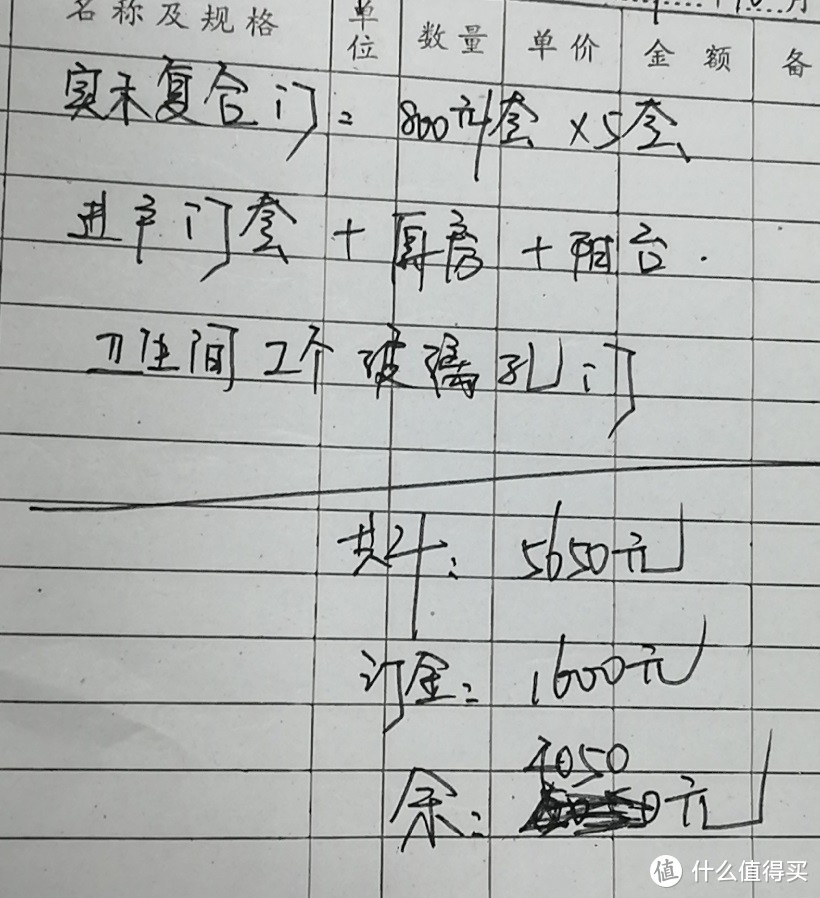 名称及规格 单位 数量 单价 金额 备
实木复合门: 800元/套 ×5套
进户门套 + 厨房 + 阳台.
卫生间 2个玻璃孔门
共计: 5650元
订金: 1600元
4050
余: 元
值 什么值得买